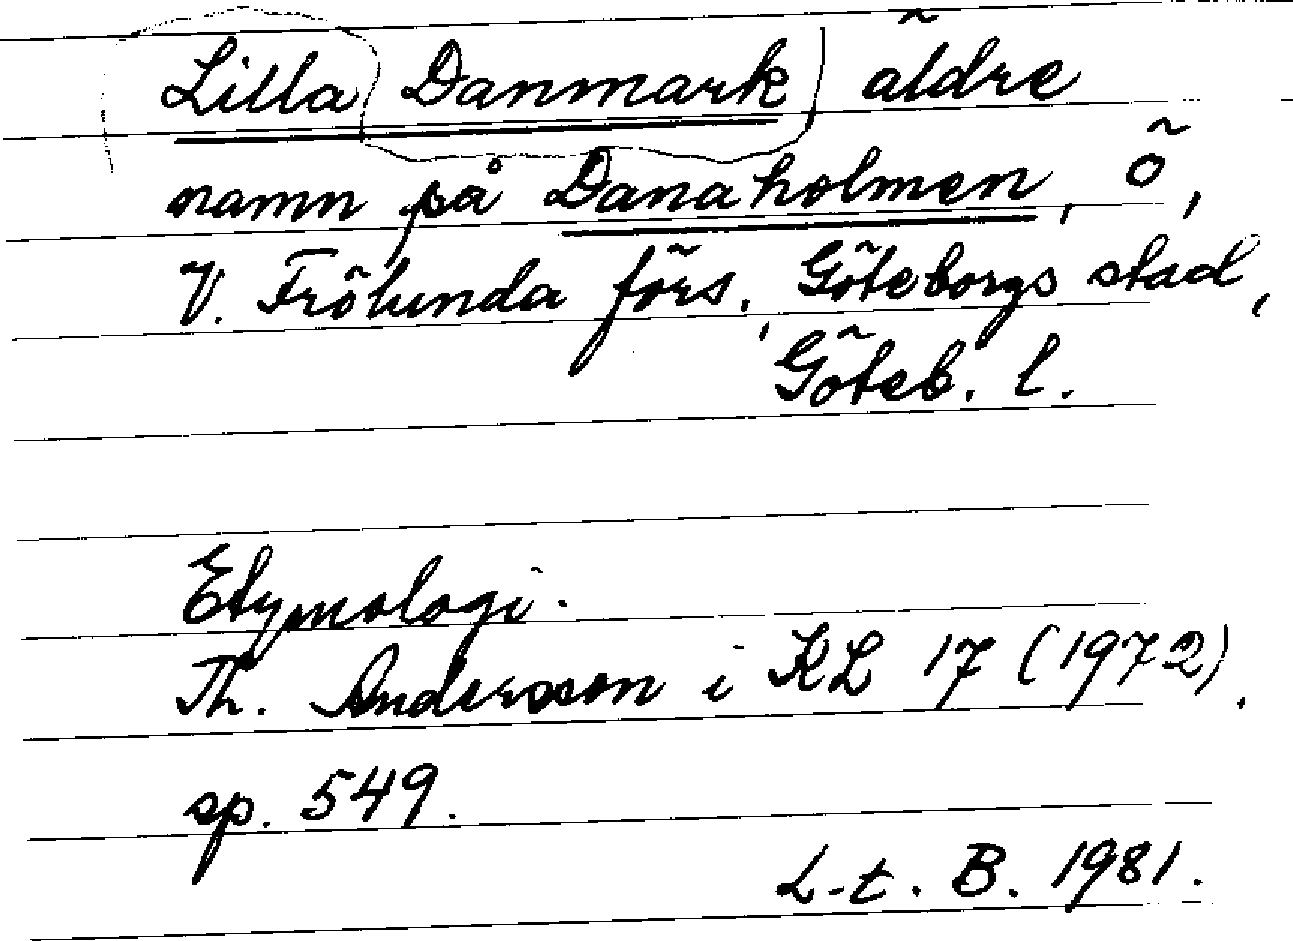 Lilla Danmark äldre
namn på Danaholmen, ö,
V. Frölunda förs., Göteborgs stad,
Göteb. l.
Etymologi.
Th. Andersson i KL 17 (1972),
sp. 549.
L-t. B. 1981.